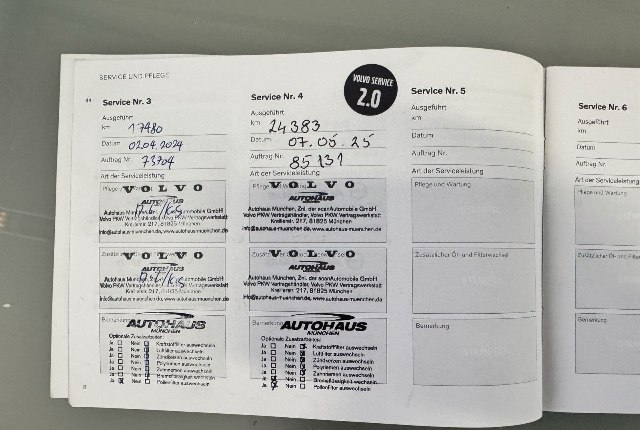 SERVICE UND PFLEGE
VOLVO SERVICE
2.0
44
Service Nr. 3
Ausgeführt
km 17480
Datum 02.04.2024
Auftrag Nr. 73704
Art der Serviceleistung
Pflege
VOLVO
AUTOHAUS
Autohaus München, Znl. der scanAutomobile GmbH
Volvo PKW Vertragshändler, Volvo PKW Vertragswerkstatt
Kreillerstr. 217, 81825 München
info@autohaus-muenchen.de, www.autohaus-muenchen.de
VOLVO
AUTOHAUS
Volvo PKW Vertragshändler, Volvo PKW Vertragswerkstatt
Kreillerstr. 217, 81825 München
info@autohaus-muenchen.de, www.autohaus-muenchen.de
Bemerkung
AUTOHAUS
MÜNCHEN
Optionale Zusatzarbeiten:
Ja Nein Kraftstofffilter auswechseln
Ja Nein Luftfilter auswechseln
Ja Nein Zündkerzen auswechseln
Ja Nein Polyriemen auswechseln
Ja Nein Zahnriemen auswechseln
Ja Nein Bremsflüssigkeit wechseln
Ja Nein Pollenfilter auswechseln
Service Nr. 4
Ausgeführt
km 24383
Datum 07.05.25
Auftrag Nr. 85131
Art der Serviceleistung
VOLVO
AUTOHAUS
Autohaus München, Znl. der scanAutomobile GmbH
Volvo PKW Vertragshändler, Volvo PKW Vertragswerkstatt
Kreillerstr. 217, 81825 München
info@autohaus-muenchen.de, www.autohaus-muenchen.de
VOLVO
AUTOHAUS
Autohaus München, Znl. der scanAutomobile GmbH
Volvo PKW Vertragshändler, Volvo PKW Vertragswerkstatt
Kreillerstr. 217, 81825 München
info@autohaus-muenchen.de, www.autohaus-muenchen.de
Bemerkung
AUTOHAUS
MÜNCHEN
Optionale Zusatzarbeiten:
Ja Nein Kraftstofffilter auswechseln
Ja Nein Luftfilter auswechseln
Ja Nein Zündkerzen auswechseln
Ja Nein Polyriemen auswechseln
Ja Nein Zahnriemen auswechseln
Ja Nein Bremsflüssigkeit wechseln
Ja Nein Pollenfilter auswechseln
Service Nr. 5
Ausgeführt
km
Datum
Auftrag Nr.
Art der Serviceleistung
Pflege und Wartung
Zusätzlicher Öl- und Filterwechsel
Bemerkung
Service Nr. 6
Ausgeführt
km
Datum
Auftrag Nr.
Art der Serviceleistung
Pflege und Wartung
Zusätzlicher Öl- und Filterwechsel
Bemerkung